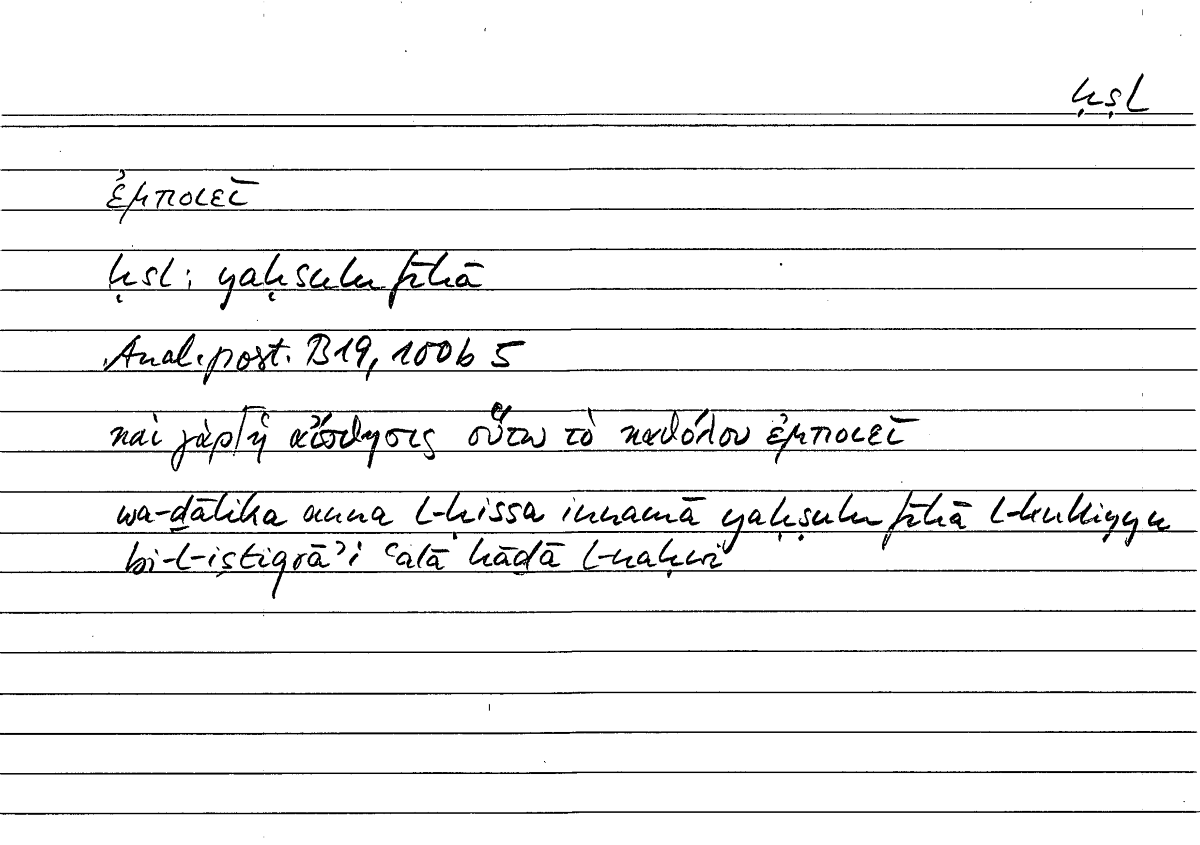 ḥṣl
ἐμποιεῖ
ḥsl: yaḥsulu fīhā
Anal. post. B19, 100b 5
καὶ γὰρ ἡ αἴσθησις οὕτω τὸ καθόλου ἐμποιεῖ
wa-ḏālika anna l-ḥissa innamā yaḥṣulu fīhā l-kulliyyu
bi-l-istiqrāʾi ʿalā hāḏā l-naḥwi